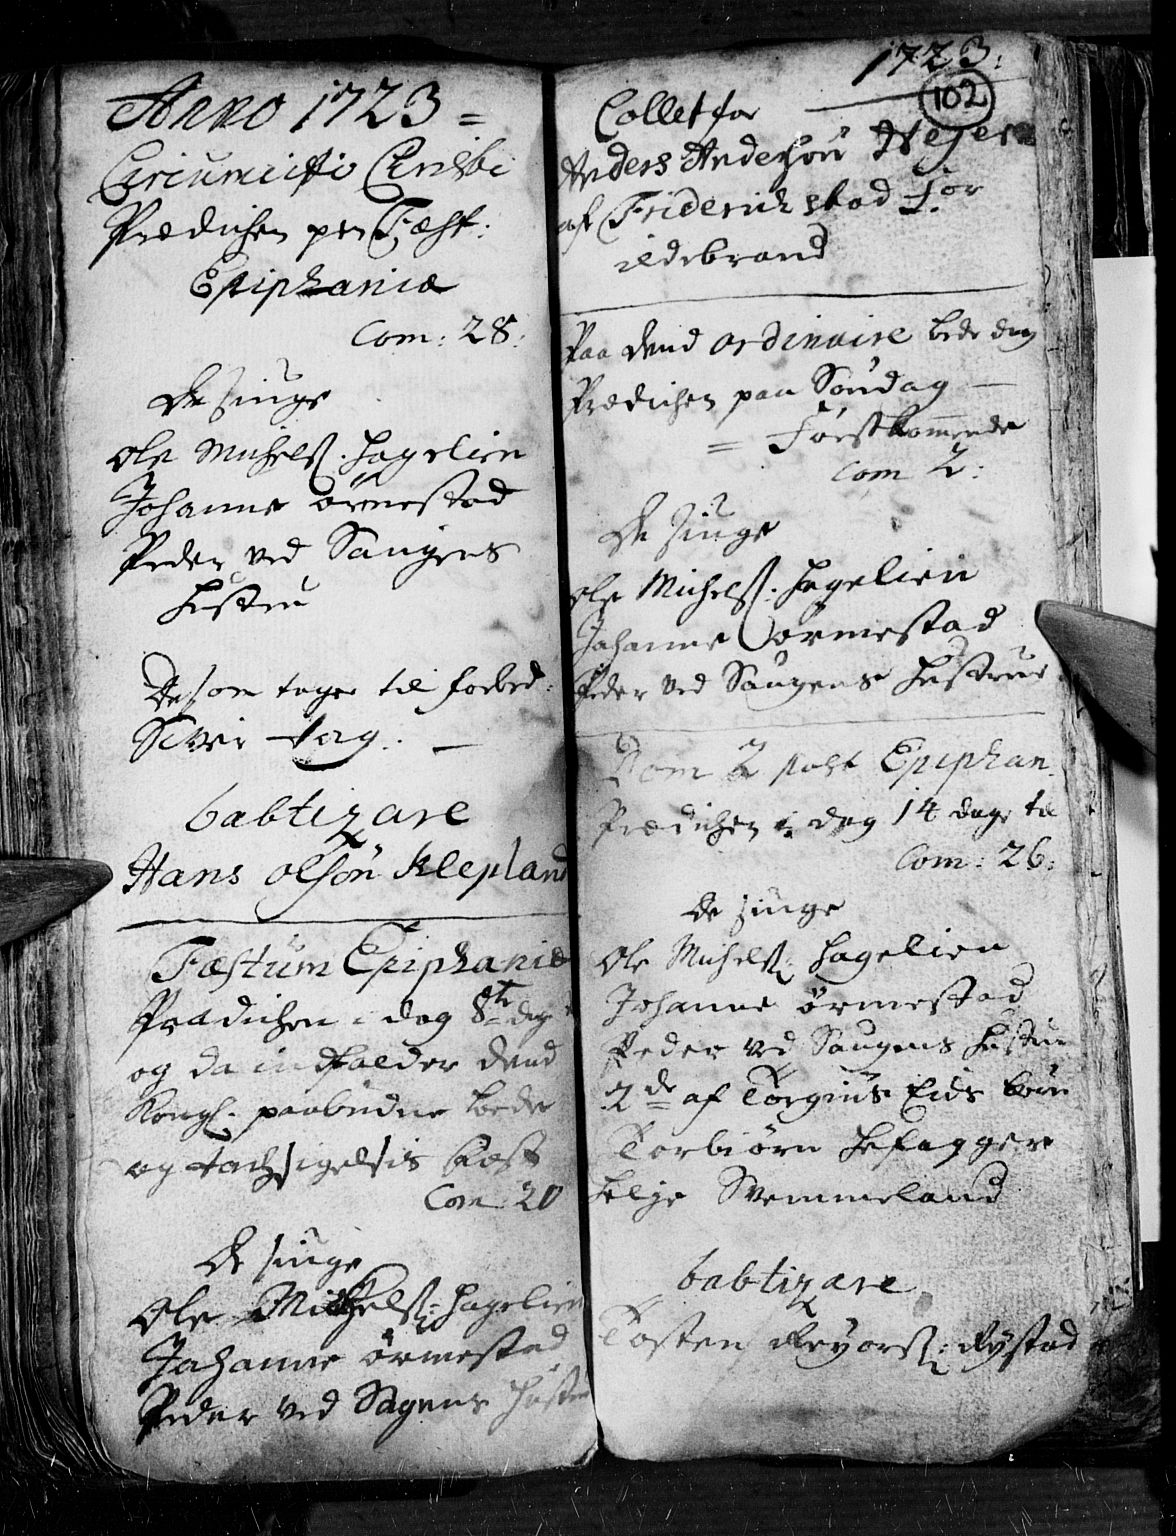 Anno 1723 =
Circumcisio Christi
Prædichen paa Fæst:
Epiphaniæ
Com: 28:
De siuge
Ole Michelsß: Hagelien
Johanne Ørmestad
Peder ved Saugens
Hustru
De som tager til forbed:
Siver Aag. —
babtizare
Hans Olsøn Klepland
Fæstum Epiphaniæ
Prædichen i dag 8te dag
og da indfalder dend
Kongl: paabudne bede
og tachsigelsis Fæst
Com: 20
De siuge
Ole Michelsß: Hagelien
Johanne Ørmestad
Peder ved Sagens Hustru
1723:
102
Collet for
Anders Andersøn Neje
af Friderichstad for
ildebrand
Paa dend ordinaire bede dag
Prædichen paa Søndag —
= Førstkommende
Com 2:
De siuge
Ole Michelsß: Hagelien
Johanne Ørmestad
Peder ved Saugens Hustrue
Dom 2 post Epiphan.
Prædichen i dag 14 dage til
Com: 26:
De siuge
Ole Michelsß: Hagelien
Johanne Ørmestad
Peder ved Saugens Hustru
2de af Torgius Eids børn
Torbiørn
Helje Svemmeland
babtizare
Tosten Reyorsß: Rystad